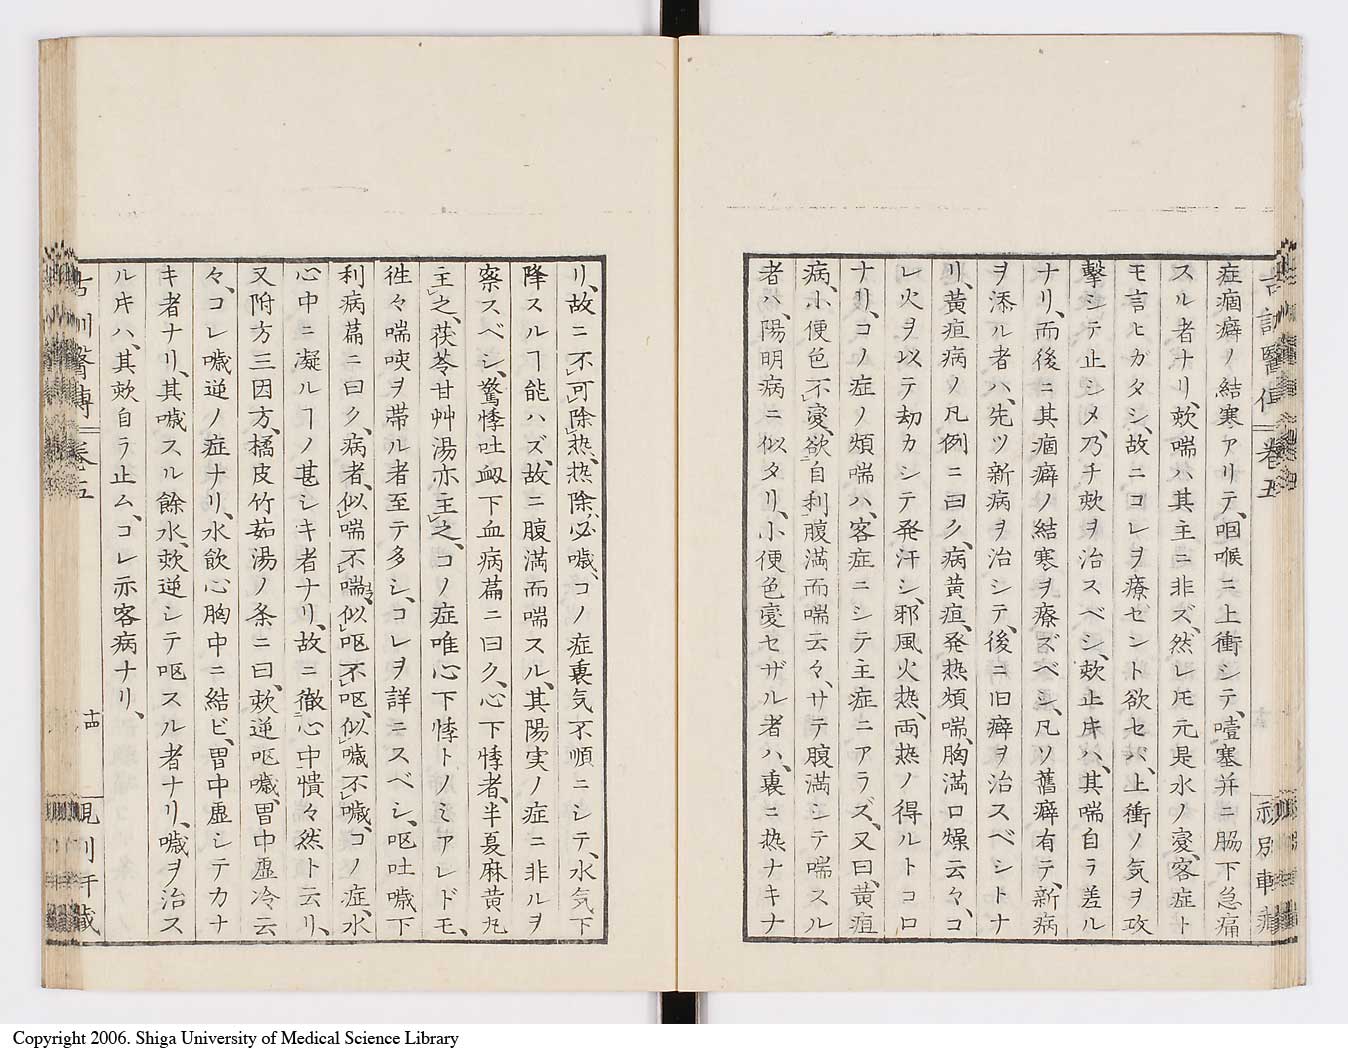 症痼癖ノ結寒アリテ、咽喉ニ上衝シテ、噎塞并ニ脇下急痛
スル者ナリ、欬喘ハ其主ニ非ズ、然レ𪜈元是水ノ変、客症ト
モ言ヒガタシ、故ニコレヲ療ゼント欲セバ、上衝ノ気ヲ攻
撃シテ止シメ、乃チ欬ヲ治スベシ、欬止𪜈ハ、其喘自ラ差ル
ナリ、而後ニ其痼癖ノ結寒ヲ療ズベシ、凡ソ舊癖有テ、新病
ヲ添ル者ハ、先ツ新病ヲ治シテ、後ニ旧癖ヲ治スベシトナ
リ、黄疸病ノ凡例ニ曰ク、病黄疸、発熱煩喘、胸満口燥云々、コ
レ火ヲ以テ劫カシテ発汗シ、邪風火熱、両熱ノ得ルトコロ
ナリ、コノ症ノ煩喘ハ、客症ニシテ主症ニアラズ、又曰、黄疸
病、小便色不変、欲自利、腹満而喘云々、サテ腹満シテ喘スル
者ハ、陽明病ニ似タリ、小便色変セザル者ハ、裏ニ熱ナキナ
リ、故ニ不可除熱、熱除必噦、コノ症裏気不順ニシテ、水気下
降スルヿ能ハズ、故ニ腹満而喘スル、其陽実ノ症ニ非ルヲ
察スベシ、驚悸吐衂下血病篇ニ曰久、心下悸者、半夏麻黄丸
主之、茯苓甘艸湯亦主之、コノ症唯心下悸トノミアレドモ、
往々喘咳ヲ帯ル者至テ多シ、コレヲ詳ニスベシ、呕吐噦下
利病篇ニ曰ク、病者、似喘不喘、似呕不呕、似噦不噦、コノ症、水
心中ニ凝ルヿノ甚シキ者ナリ、故ニ徹心中憒々然ト云リ、
又附方三因方、橘皮竹茹湯ノ条ニ曰、欬逆呕噦、胃中虚冷云
々、コレ噦逆ノ症ナリ、水飲心胸中ニ結ビ、胃中虚シテカナ
キ者ナリ、其噦スル餘水、欬逆シテ呕スル者ナリ、噦ヲ治ス
ル𪜈ハ、其欬自ラ止ム、コレ亦客病ナリ、
十四
Copyright 2006. Shiga University of Medical Science Library